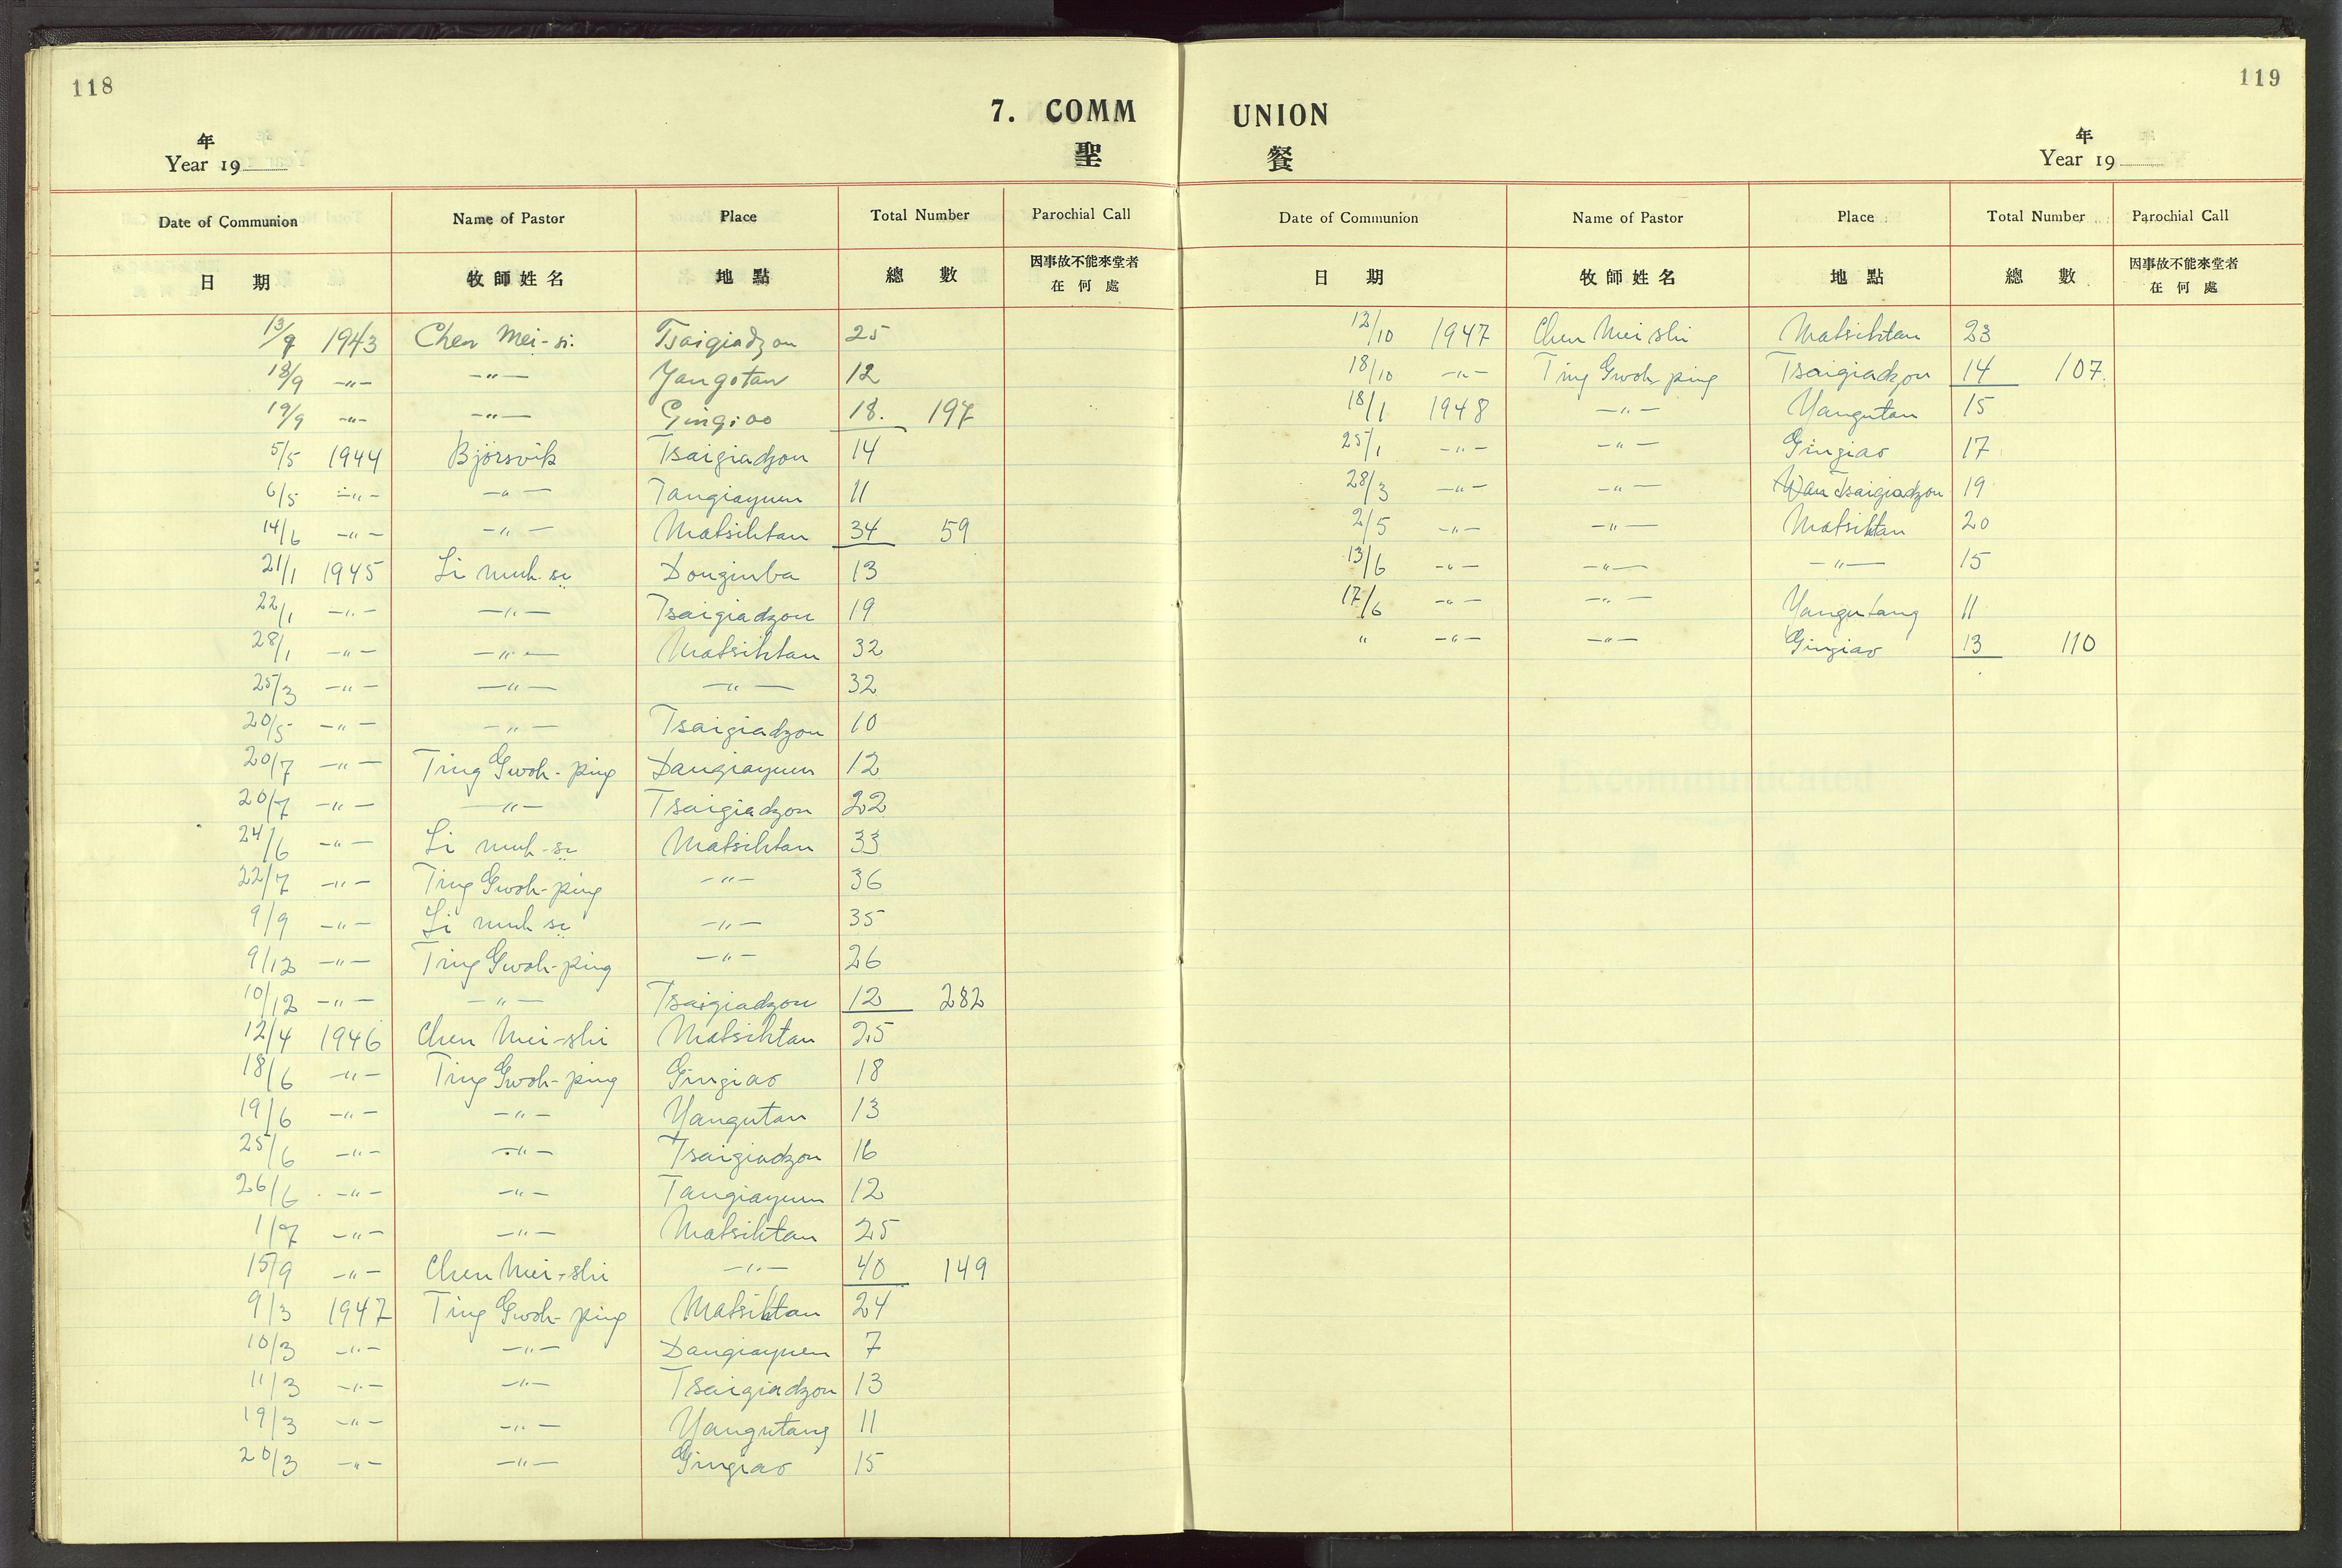 118
7. COMM
年
Year 19
聖
Date of Communion Name of Pastor Place Total Number Parochial Call
日 期 牧師姓名 地點 總 數 因事故不能來堂者
在何處
13/9 1943 Chen Mei-si. Tsaigiadzou 25
18/9 -"- -"- Yangotan 12
19/9 -"- -"- Gingiao 18. 197
5/5 1944 Björsvik Tsaigiadzou 14
6/5 -"- -"- Tangiayuen 11
14/6 -"- -"- Matsihtan 34 59
21/1 1945 Li muh-si Donginba 13
22/1 -"- -"- Tsaigiadzou 19
28/1 -"- -"- Matsihtan 32
25/3 -"- -"- -"- 32
20/5 -"- -"- Tsaigiadzou 10
20/7 -"- Ting Gwoh-ping Dangiayuen 12
20/7 -"- -"- Tsaigiadzou 22
24/6 -"- Li muh-si Matsihtan 33
22/7 -"- Ting Gwoh-ping -"- 36
9/9 -"- Li muh si -"- 35
9/12 -"- Ting Gwoh-ping -"- 26
10/12 -"- -"- Tsaigiadzou 12 282
12/4 1946 Chen Mei-shi Matsihtan 25
18/6 -"- Ting Gwoh-ping Gingiao 18
19/6 -"- -"- Yangutan 13
25/6 -"- -"- Tsaigiadzou 16
26/6 -"- -"- Tangiayuen 12
1/7 -"- -"- Matsihtan 25
15/9 -"- Chen Mei-shi -"- 40 149
9/3 1947 Ting Gwoh-ping Matsihtan 24
10/3 -"- -"- Dangiayuen 7
11/3 -"- -"- Tsaigiadzou 13
19/3 -"- -"- Yangutang 11
20/3 -"- -"- Gingiao 15
119
UNION
年
Year 19
餐
Date of Communion Name of Pastor Place Total Number Parochial Call
日 期 牧師姓名 地點 總 數 因事故不能來堂者
在何處
12/10 1947 Chen Mei shi Matsihtan 23
18/10 -"- Ting Gwoh ping Tsaigiadzou 14 107.
18/1 1948 -"- Yangutan 15
25/1 -"- -"- Gingiao 17
28/3 -"- -"- Tsaigiadzou 19
2/5 -"- -"- Matsihtan 20
13/6 -"- -"- -"- 15
17/6 -"- -"- Yangutang 11
" -"- -"- Gingiao 13 110